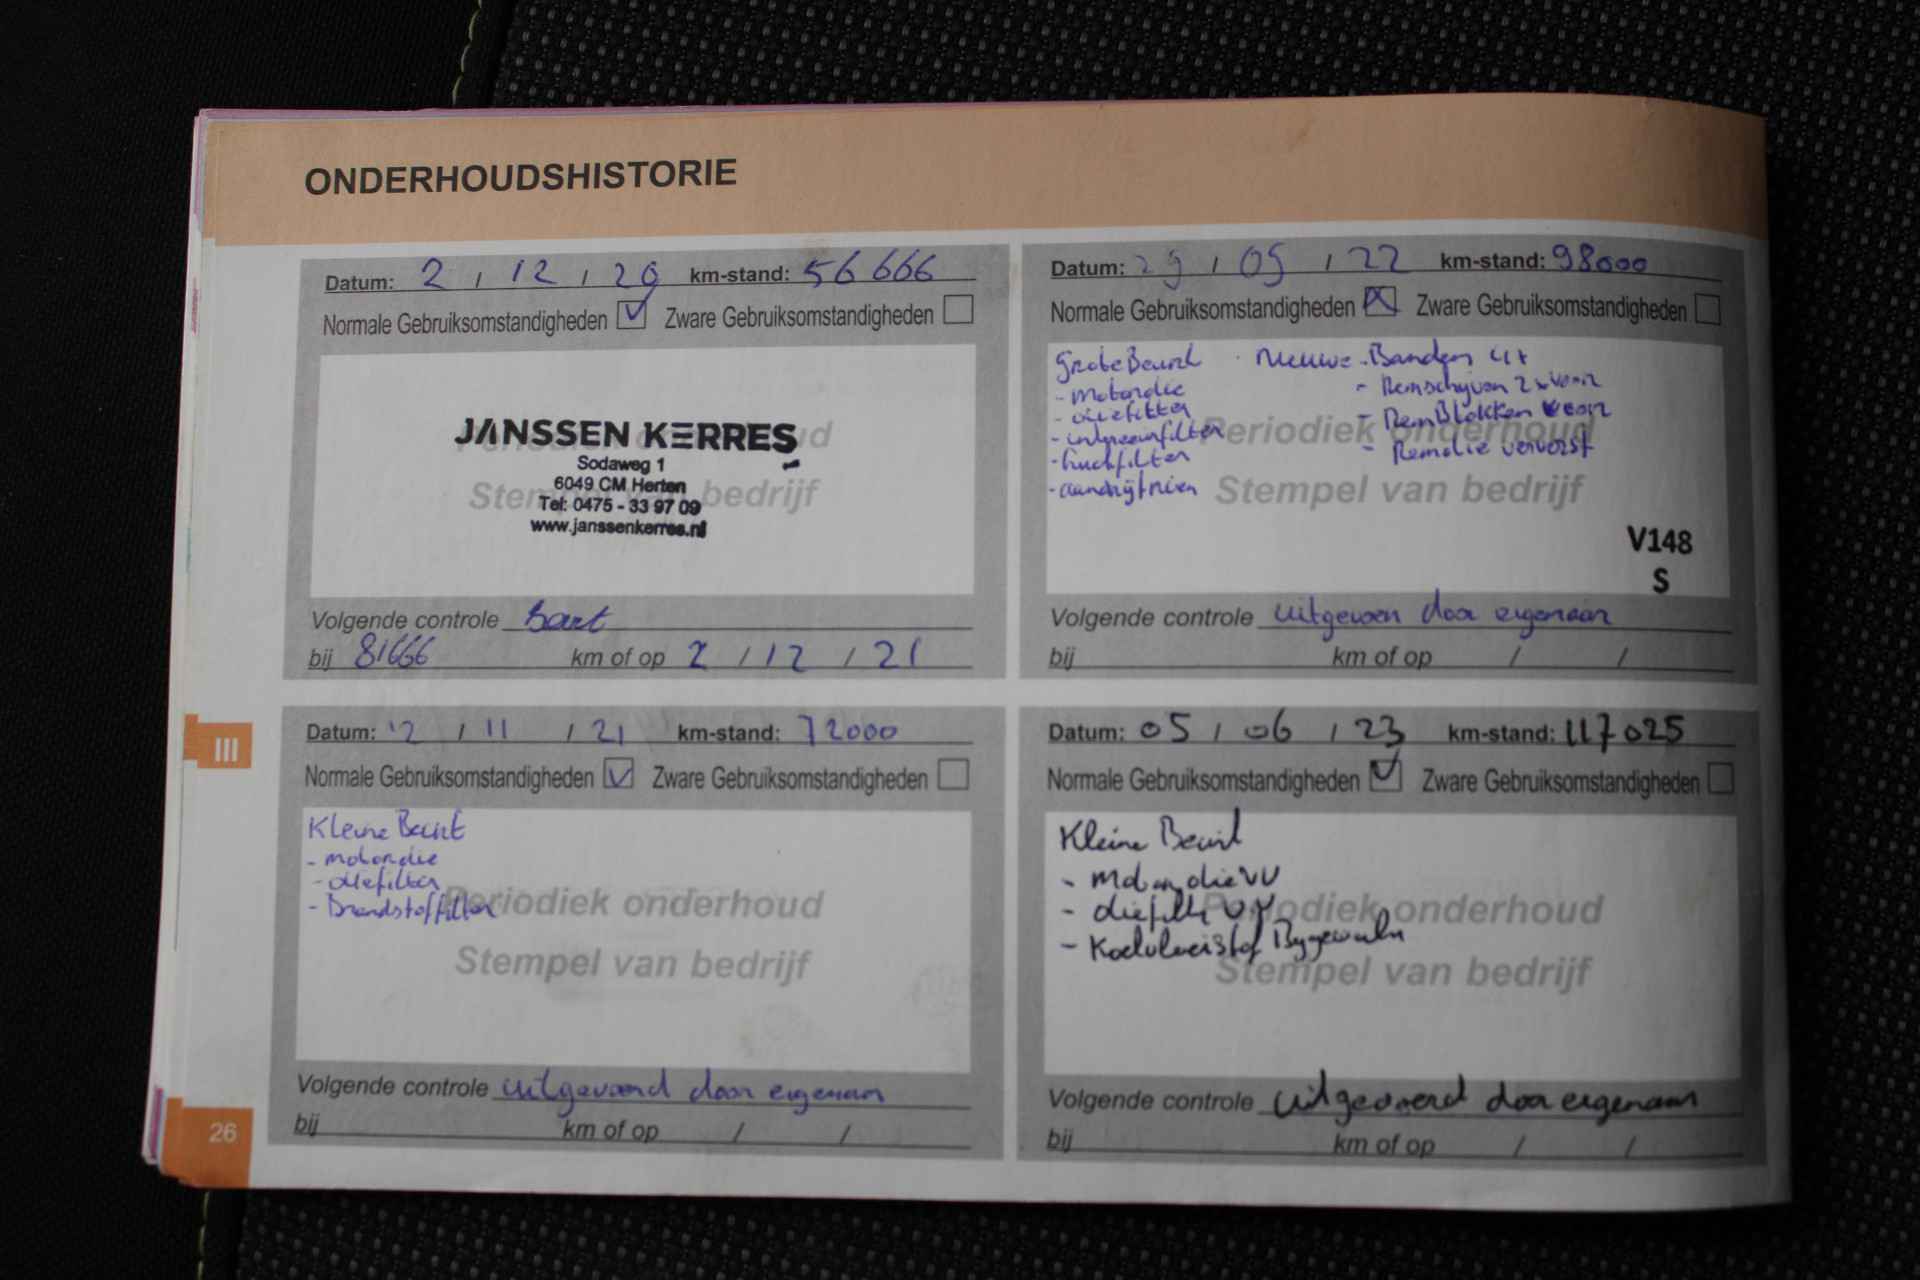 ONDERHOUDSHISTORIE
Datum: 2 / 12 / 20 km-stand: 56666
Normale Gebruiksomstandigheden Zware Gebruiksomstandigheden
Periodiek onderhoud
Stempel van bedrijf
JANSSEN KERRES
Sodaweg 1
6049 CM Herten
Tel: 0475 - 33 97 09
www.janssenkerres.nl
Volgende controle
bij 81666 km of op 2 / 12 / 21
Datum: 12 / 11 / 21 km-stand: 72000
Normale Gebruiksomstandigheden Zware Gebruiksomstandigheden
Kleine Beurt
- motorolie
- oliefilter
- Brandstoffilter
Periodiek onderhoud
Stempel van bedrijf
Volgende controle uitgevoerd door eigenaar
bij km of op / /
Datum: 29 / 05 / 22 km-stand: 98000
Normale Gebruiksomstandigheden Zware Gebruiksomstandigheden
Grote Beurt
- motorolie
- oliefilter
- interieurfilter
- luchtfilter
- aandrijfriem
Nieuwe - Banden 4x
- Remschijven 2x voor
- RemBlokken voor
- Remolie ververst
Periodiek onderhoud
Stempel van bedrijf
V148
S
Volgende controle uitgevoen door eigenaar
bij km of op / /
Datum: 05 / 06 / 23 km-stand: 117025
Normale Gebruiksomstandigheden Zware Gebruiksomstandigheden
Kleine Beurt
- Motorolie VV
- oliefilter VV
- Koelvloeistof Bijgevuld
Periodiek onderhoud
Stempel van bedrijf
Volgende controle uitgevoerd door eigenaar
bij km of op / /
III
26